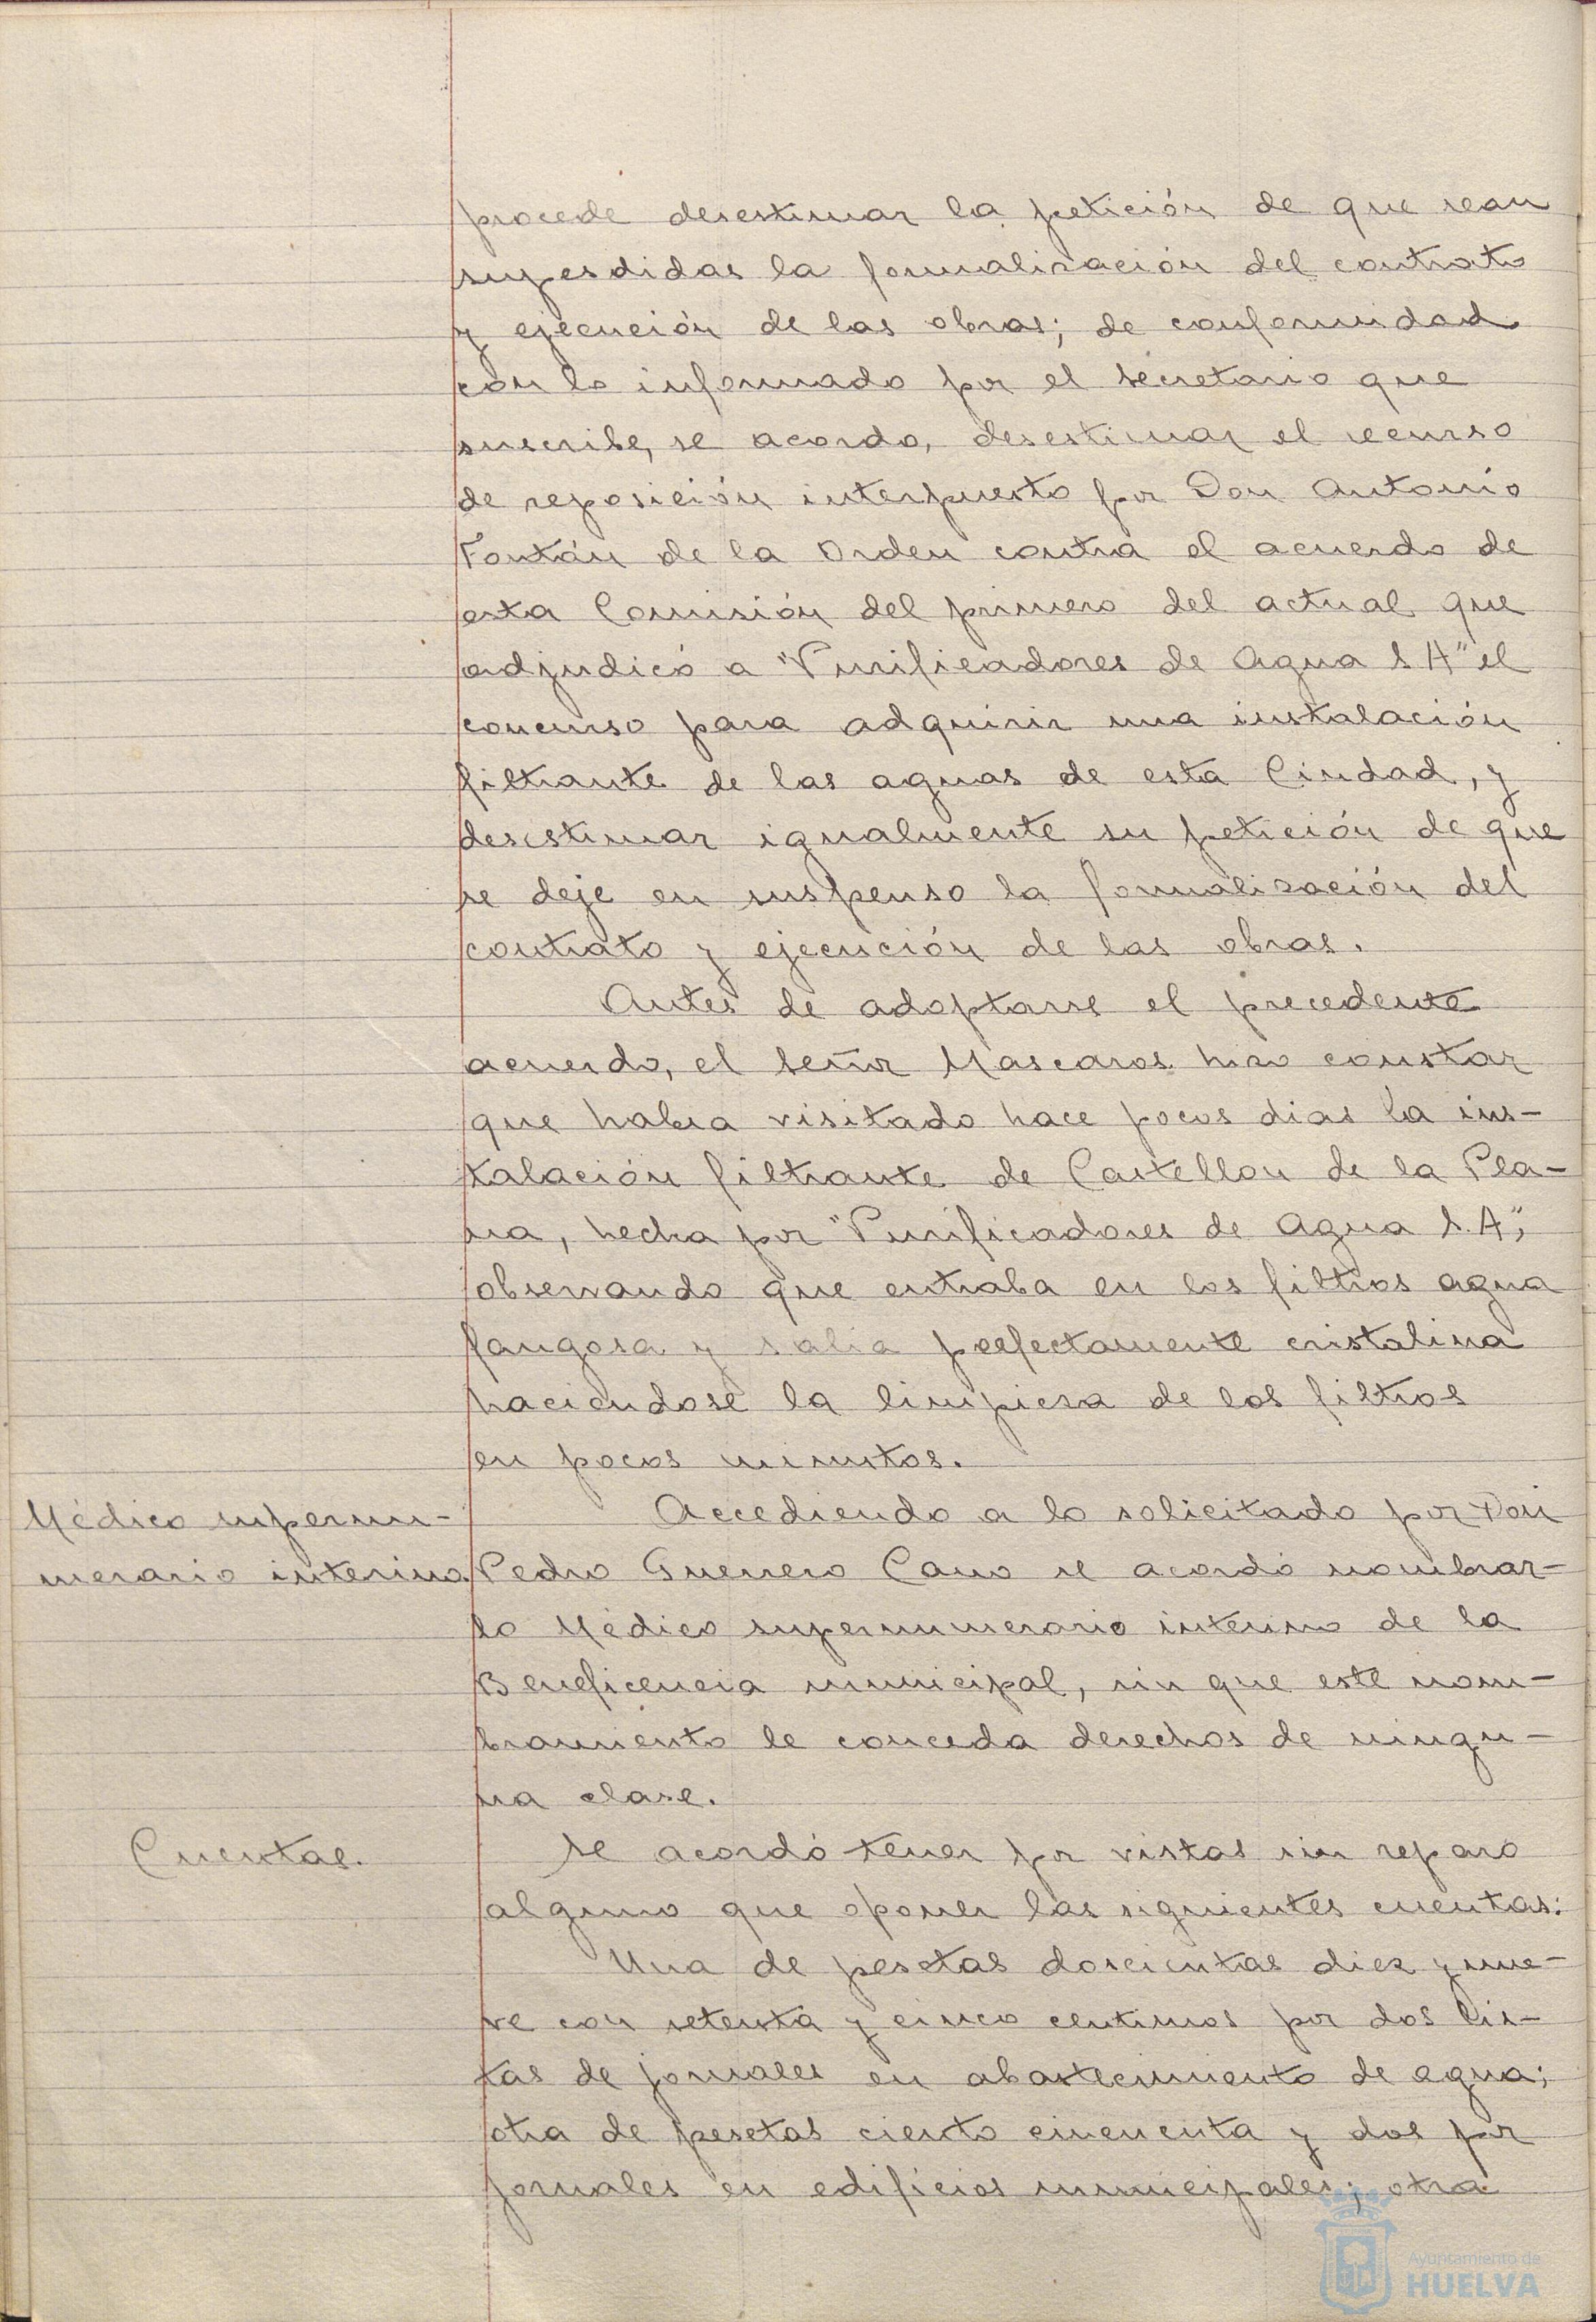 procede desestimar la petición de que sean
supesdidas la formalización del contrato
y ejecución de las obras; de conformidad
con lo informado por el Secretario que
suscribe, se acordo, desestimar el recurso
de reposición interpuesto por Don Antonio
Fontán de la Orden contra el acuerdo de
esta Comisión del primero del actual que
adjudicó a "Purificadores de Agua S A" el
concurso para adquirir una instalación
filtrante de las aguas de esta Ciudad, y
desestimar igualmente su petición de que
se deje en suspenso la formalización del
contrato y ejecución de las obras.
Antes de adoptarse el precedente
acuerdo, el Señor Mascaros hizo constar
que habia visitado hace pocos dias la ins-
talación filtrante de Castellon de la Pla-
na, hecha por "Purificadores de Agua S.A",
observando que entraba en los filtros agua
fangosa y salia perfectamente cristalina
haciendose la limpieza de los filtros
en pocos minutos.
Médico supernu-
merario interino.
Accediendo a lo solicitado por Don
Pedro Guerrero Cano se acordó nombrar-
lo Médico supernumerario interino de la
Beneficencia municipal, sin que este nom-
bramiento le conceda derechos de ningu-
na clase.
Cuentas.
Se acordó tener por vistas sin reparo
alguno que oponer las siguientes cuentas:
Una de pesetas doscientas diez y nue-
ve con setenta y cinco centimos por dos lis-
tas de jornales en abastecimiento de agua;
otra de pesetas ciento cincuenta y dos por
jornales en edificios municipales; otra
Ayuntamiento de
HUELVA